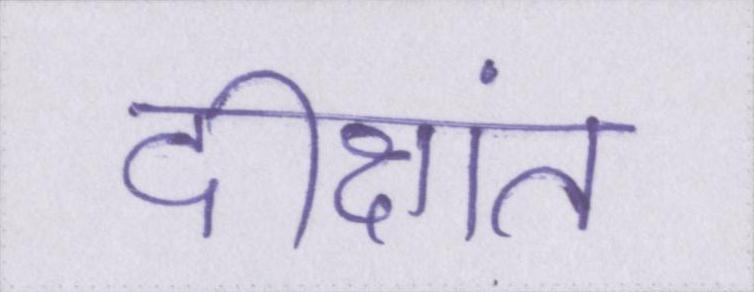 दीक्षांत